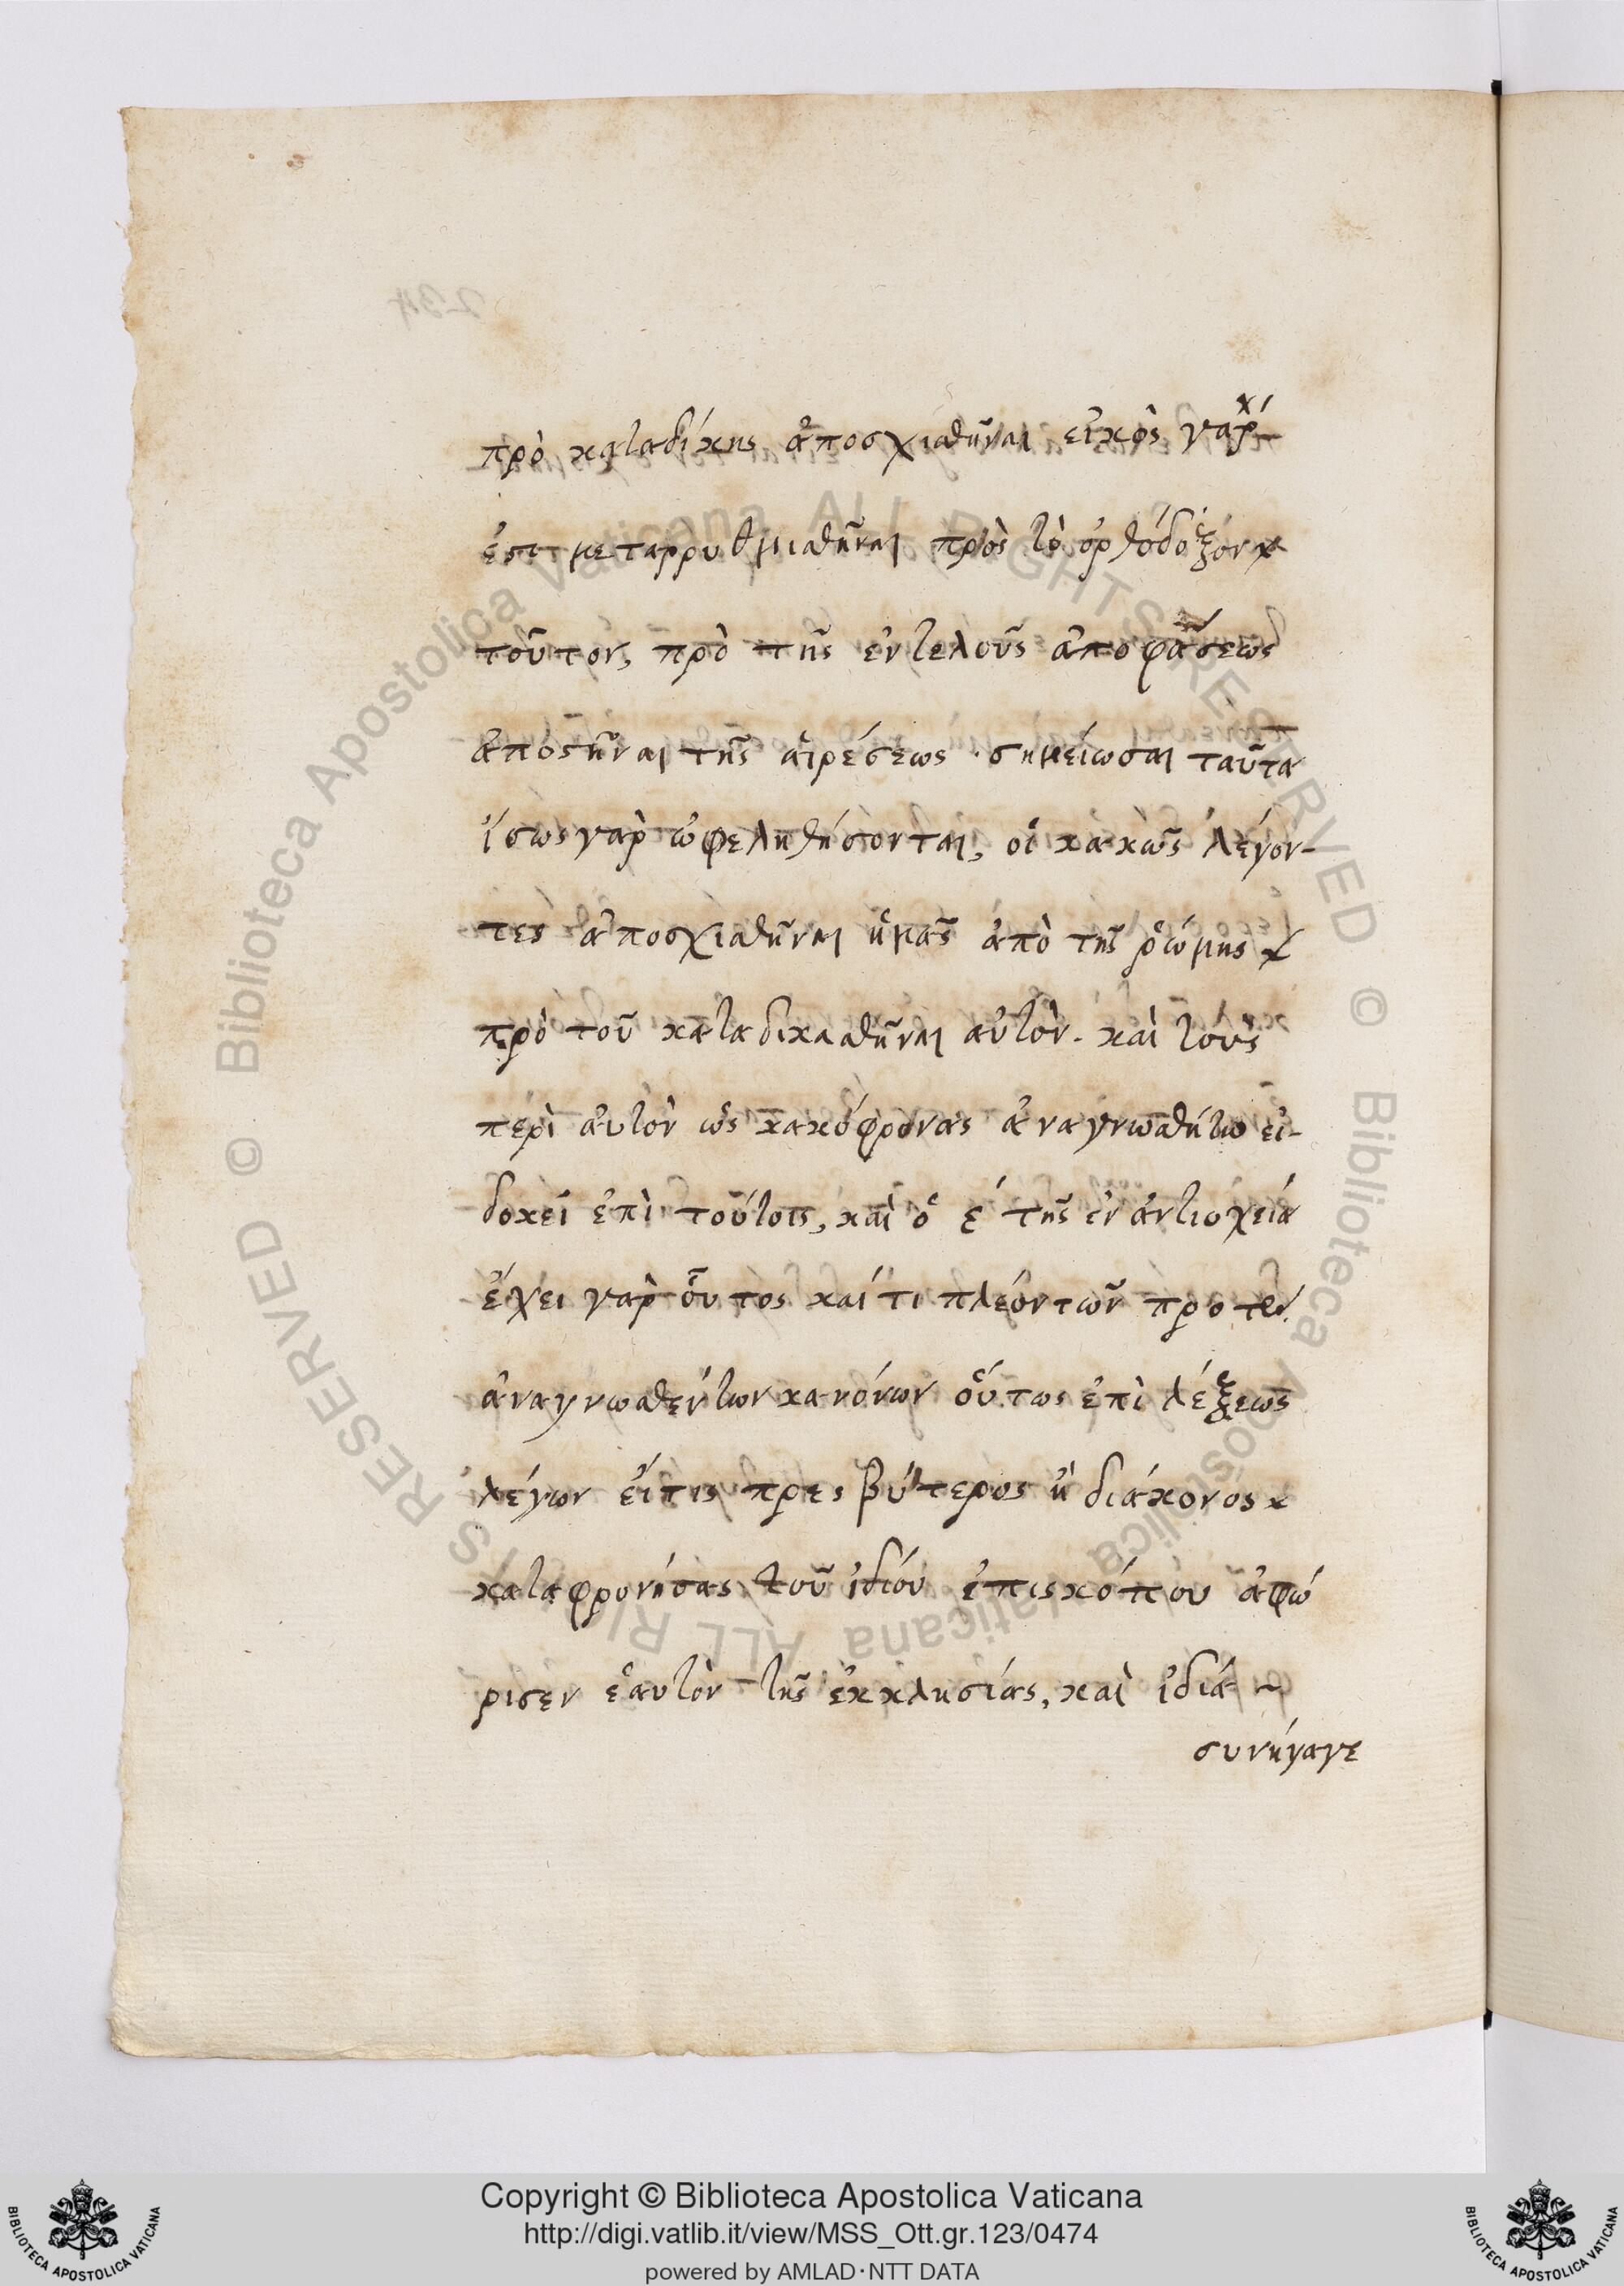 πρὸ καταδίκης ἀποσχισθῆναι εἰκὸς γάρ
ἐστι μεταρρυθμισθῆναι πρὸς τὸ ὀρθόδοξον
τοῦτον, πρὸ τῆς ἐντελοῦς ἀποφάσεως
ἀποστῆναι τῆς αἱρέσεως · σημείωσαι ταῦτα
ἴσως γὰρ ὠφεληθήσονται, οἱ κακῶς λέγον-
τες ἀποσχισθῆναι ἡμᾶς ἀπὸ τῆς ῥώμης
πρὸ τοῦ καταδικασθῆναι αὐτὸν. καὶ τοὺς
περὶ αὐτὸν ὡς κακόφρονας ἀναγνωσθήτω εἰ-
δοκεῖ ἐπὶ τούτοις, καὶ ὁ έ τῆς ἐν ἀντιοχεία
ἔχει γὰρ οὗτος καί τι πλέον τῶν προτέ
ἀναγνωσθέντων κανόνων οὕτως ἐπὶ λέξεως
λέγων εἴτις πρεσβύτερος ἢ διάκονος
καταφρονήσας τοῦ ἰδίου ἐπισκόπου ἀφώ
ρισεν ἑαυτὸν τῆς ἐκκλησίας, καὶ ἰδιά ~
συνήγαγε
Copyright © Biblioteca Apostolica Vaticana
http://digi.vatlib.it/view/MSS_Ott.gr.123/0474
powered by AMLAD·NTT DATA